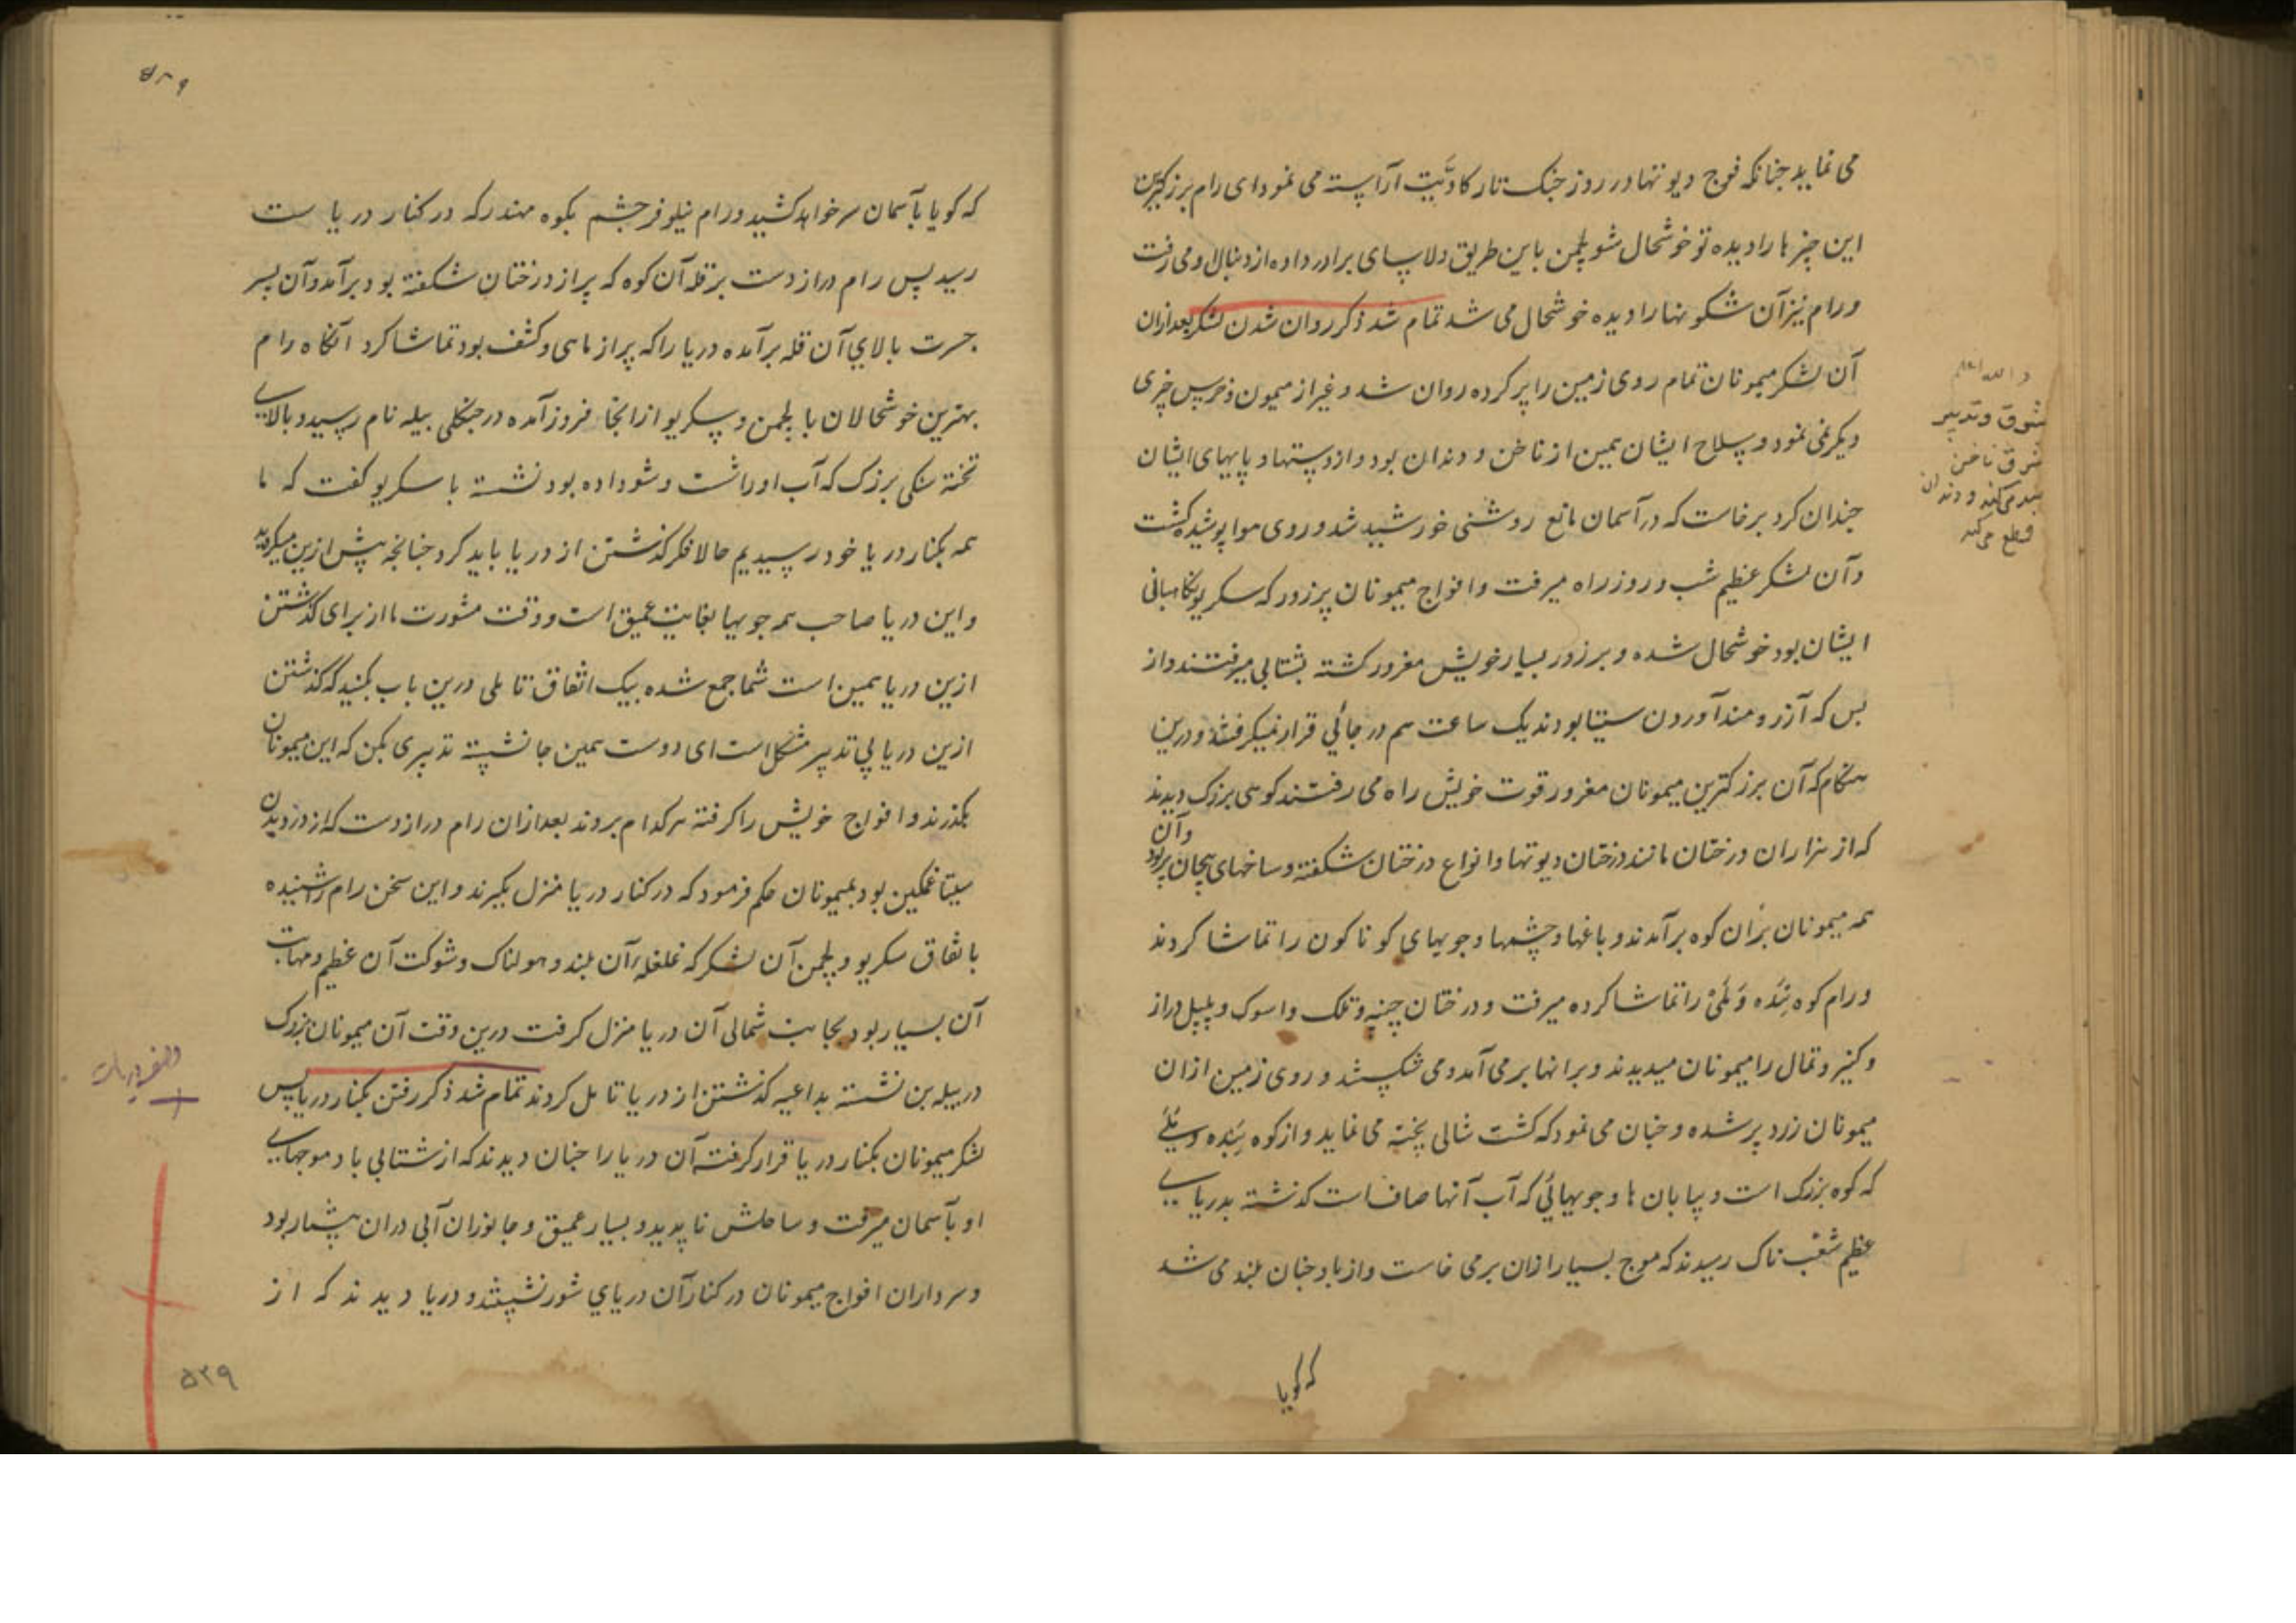 می نماید چنانکه فوج دیوتها در روز جنک تارکا دیَّت آراسته می نمود ای رام بزرکترین
این چیزها را دیده تو خوشحال شو لچمن باین طریق دلاسای برادر داده از دنبال او می رفت
و رام نیز آن شکونها را دیده خوشحال می شد تمام شد ذکر روان شدن لشکر بعد ازان
آن لشکر میمونان تمام روی زمین را پر کرده روان شد و غیر از میمون و خرس چیزی
دیکر نمی نمود و سلاح ایشان همین از ناخن و دندان بود و از دستها و پایهای ایشان
چندان کرد برخاست که در آسمان مانع روشنی خورشید شد و روی هوا پوشیده کشت
و آن لشکر عظیم شب و روز راه میرفت و افواج میمونان پرزور که سکریو نکاهبانی
ایشان بود خوشحال شده و بر زور بسیار خویش مغرور کشته بشتابی میرفتند و از
بس که آرزومند آوردن سیتا بودند یک ساعت هم در جائی قرار نمیکرفتند و درین
هنکام که آن بزرکترین میمونان مغرور قوت خویش راه می رفتند کوهی بزرک دیدند
که از هزاران درختان مانند درختان دیوتها و انواع درختان شکفته و ساخهای پیچان پر بود وآن
همه میمونان بران کوه برآمدند و باغها و چشمها و جویهای کوناکون را تماشا کردند
و رام کوه بِنده و مَلَیْ را تماشا کرده میرفت و درختان چنپه و تلک و اسوک و پیپل دراز
و کنیر و تمال را میمونان میدیدند و برانها برمی آمد و می شکستند و روی زمین ازان
میمونان زرد پر شده و چنان می نمود که کشت شالی پخته می نماید و از کوه بِنده و مَلَیْ
که کوه بزرک است و بیابان ها و جویهائی که آب آنها صاف است کذشته بدریایی
عظیم شغب ناک رسیدند که موج بسیار ازان برمی خاست و از باد چنان بلند می شد
که کویا
و الله اعلم
شوق و تدبیر
ناخن
و دندان
قطع می کند
که کویا بآسمان سر خواهد کشید و رام نیلوفر چشم بکوه مهندر که در کنار دریاست
رسید پس رام دراز دست بر قله آن کوه که پر از درختان شکفته بود برآمد و آن پسر
جسرت بالای آن قله برآمده دریا را که پر از ماهی و کشف بود تماشا کرد آنکاه رام
بهترین خوشحالان با لچمن و سکریو از انجا فروز آمده در جنکلی بیله نام رسید و بالای
تخته سنکی بزرک که آب او را شست و شو داده بود نشسته با سکریو کفت که ما
همه بکنار دریا خود رسیدیم حالا فکر کذشتن از دریا باید کرد چنانچه پیش ازین میکردید
و این دریا صاحب همه جویها بغایت عمیق است و وقت مشورت ما از برای کذشتن
ازین دریا همین است شما جمع شده بیک اتفاق تاملی درین باب بکنید که کذشتن
ازین دریا بی تدبیر مشکل است ای دوست همین جا نشسته تدبیری بکن که این میمونان
بکذرند و افواج خویش را کرفته هر کدام بروند بعد ازان رام دراز دست که از دزدیدن
سیتا غمکین بود بمیمونان حکم فرمود که در کنار دریا منزل بکیرند و این سخن رام را شنیده
باتفاق سکریو و لچمن آن لشکر که غلغله آن بلند و هولناک و شوکت آن عظیم و مهابت
آن بسیار بود بجانب شمالی آن دریا منزل کرفت درین وقت آن میمونان بزرک
در بیله بن نشسته بداعیه کذشتن از دریا تامل کردند تمام شد ذکر رفتن بکنار دریا پس
لشکر میمونان بکنار دریا قرار کرفته آن دریا را چنان دیدند که از شتابی باد موجهای
او بآسمان میرفت و ساحلش ناپدید و بسیار عمیق و جانوران آبی دران بیشمار بود
و سرداران افواج میمونان در کنار آن دریای شور نشستند و دریا دیدند که از
۵۲۹